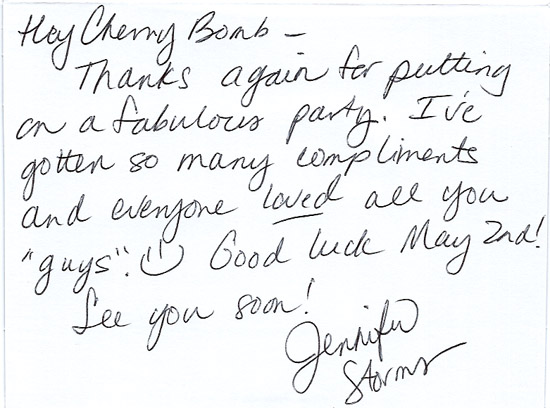 Hey Cherry Bomb –
Thanks again for putting
on a fabulous party. I've
gotten so many compliments
and everyone loved all you
"guys". Good luck May 2nd!
See you soon!
Jennifer
Storms